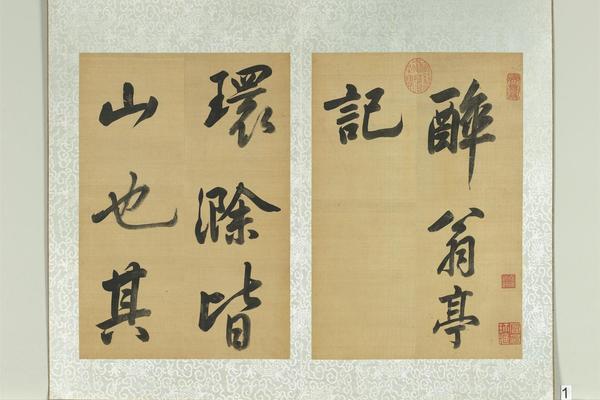 醉翁亭
記
環滁皆
山也其
1